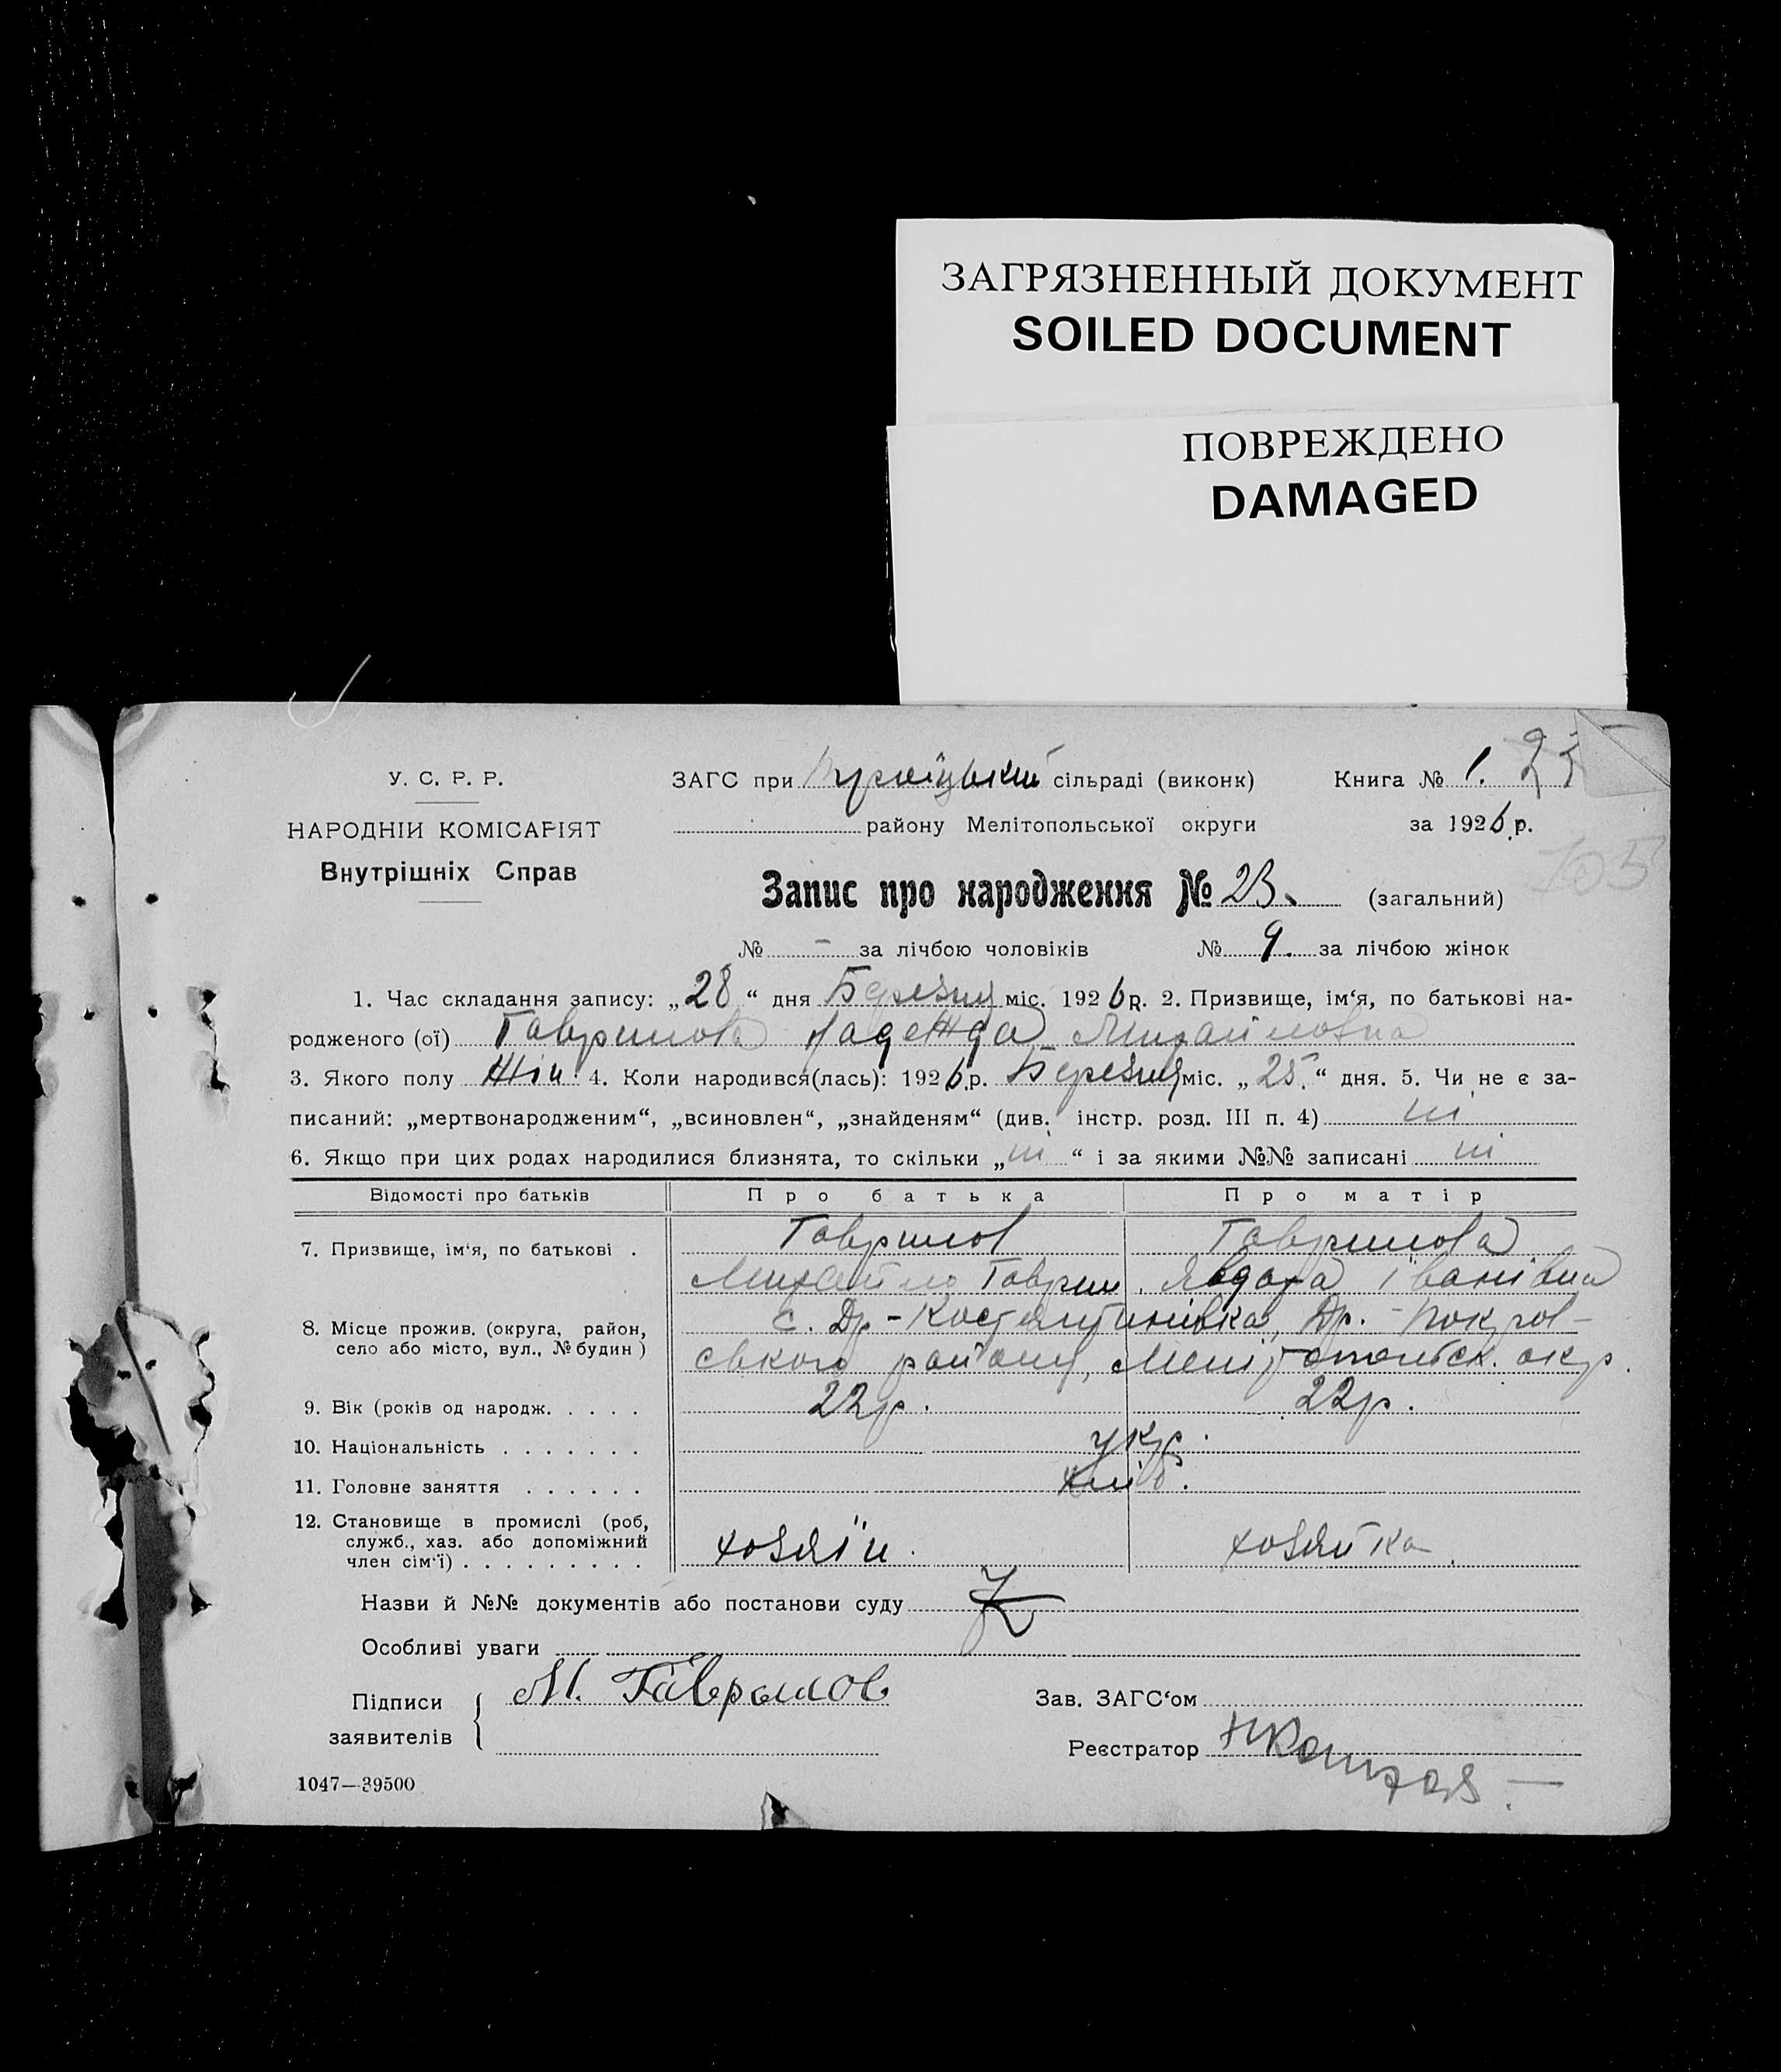 ЗАГРЯЗНЕННЫЙ ДОКУМЕНТ
SOILED DOCUMENT
ПОВРЕЖДЕНО
DAMAGED
У. С. Р. Р.
НАРОДНІИ КОМІСАРІЯТ
Внутрішніх Справ
ЗАГС при сільраді (виконк) Книга № 1. 25
району Мелітопольської округи за 1926 р.
105
Запис про народження № 23. (загальний)
№ - за лічбою чоловіків № 9. за лічбою жінок
1. Час складання запису: „28“ дня Березня міс. 1926 р. 2. Призвище, ім‘я, по батькові на-
родженого (ої) Гаврилова Надежда Михайловна
3. Якого полу жін. 4. Коли народився(лась): 1926 р. Березня міс. „25.“ дня. 5. Чи не є за-
писаний: „мертвонародженим“, „всиновлен“, „знайденям“ (див. інстр. розд. III п. 4) ні
6. Якщо при цих родах народилися близнята, то скільки „ні“ і за якими №№ записані ні
Відомості про батьків Про батька Про матір
7. Призвище, ім‘я, по батькові . Гаврилов Гаврилова
Михайло Гаврил. Явдоха Іванівна
8. Місце прожив. (округа, район, село або місто, вул., № будин) с. Др-Костянтинівка, Др.-Покров-
ського району, Мелітопольск. окр.
9. Вік (років од народж. . . . . 22 р. 22 р.
10. Національність . . . . . . . укр.
11. Головне заняття . . . . . . хліб.
12. Становище в промислі (роб, служб., хаз. або допоміжний член сім‘ї) . . . . . . . . . хозяїн. хозяйка.
Назви й №№ документів або постанови суду
Особливі уваги
Підписи заявителів М. Гаврилов
Зав. ЗАГС‘ом
Реєстратор
1047—39500